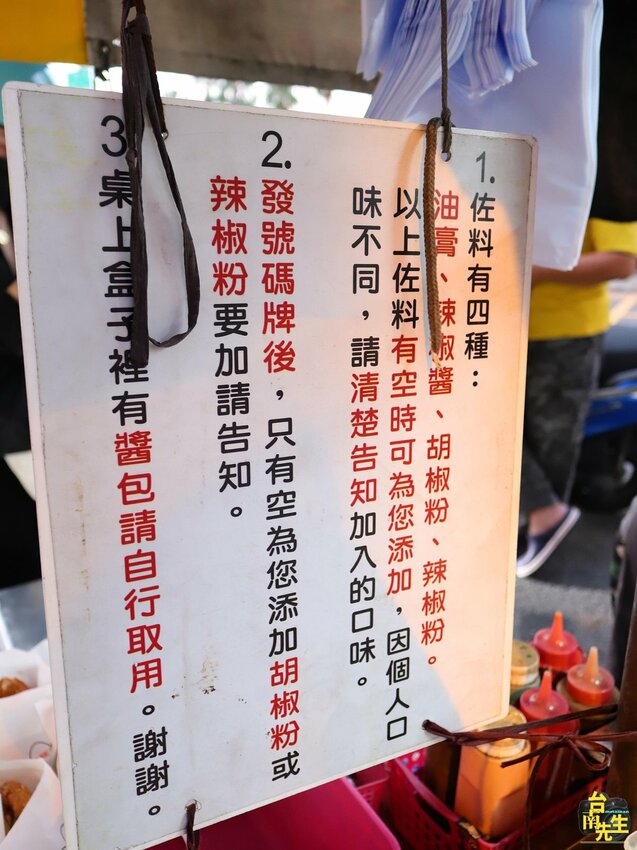 1.佐料有四種：
油膏、辣椒醬、胡椒粉、辣椒粉。
以上佐料有空時可為您添加，因個人口
味不同，請清楚告知加入的口味。
2.發號碼牌後，只有空為您添加胡椒粉或
辣椒粉要加請告知。
3桌上盒子裡有醬包請自行取用。謝謝。
台南先生